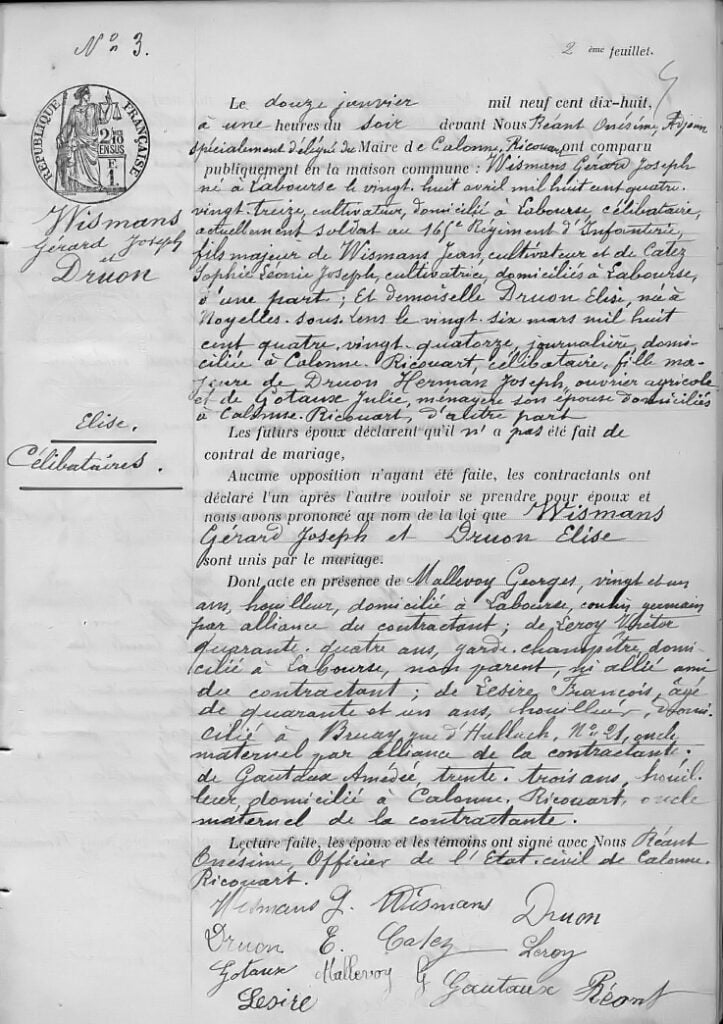 N° 3.
2 ème feuillet.
5
RÉPUBLIQUE FRANÇAISE
Wismans
Gérard Joseph
et
Druon
Elise.
Célibataires.
Le douze janvier mil neuf cent dix-huit,
à une heures du soir devant Nous Réant Onésime, Adjoint
spécialement délégué du Maire de Calonne. Ricouart ont comparu
publiquement en la maison commune : Wismans Gérard Joseph
né à Labourse le vingt. huit avril mil huit cent quatre.
vingt. treize, cultivateur, domicilié à Labourse célibataire,
actuellement soldat au 165e Régiment d'Infanterie,
fils majeur de Wismans Jean, cultivateur et de Catez
Sophie Léonie Joseph, cultivatrice, domiciliés à Labourse,
d'une part ; Et demoiselle Druon Elise, née à
Noyelles. sous. Lens le vingt. six mars mil huit
cent quatre. vingt. quatorze, journalière, domi-
ciliée à Calonne. Ricouart, célibataire, fille ma-
jeure de Druon Herman Joseph, ouvrier agricole
et de Gotaux Julie, ménagère son épouse domiciliés
à Calonne. Ricouart, d'autre part
Les futurs époux déclarent qu'il n'a pas été fait de
contrat de mariage,
Aucune opposition n'ayant été faite, les contractants ont
déclaré l'un après l'autre vouloir se prendre pour époux et
nous avons prononcé au nom de la loi que Wismans
Gérard Joseph et Druon Elise
sont unis par le mariage.
Dont acte en présence de Mallevoy Georges, vingt et un
ans, houilleur, domicilié à Labourse, cousin germain
par alliance du contractant ; de Leroy Victor
quarante. quatre ans, garde. champêtre, domi-
cilié à Labourse, non parent, ni allié ami
du contractant ; de Lesire François, âgé
de quarante et un ans, houilleur, domi-
cilié à Bruay rue d'Hulluch, N° 21, oncle
maternel par alliance de la contractante.
de Gautaux Amédié, trente. trois ans, houil-
leur, domicilié à Calonne. Ricouart, oncle
maternel de la contractante.
Lecture faite, les époux et les témoins ont signé avec Nous Réant
Onésime, Officier de l'Etat. civil de Calonne.
Ricouart.
Wismans G. Wismans Druon
Druon E. Catez Leroy
Gotaux Mallevoy G Gautaux Réant
Lesire